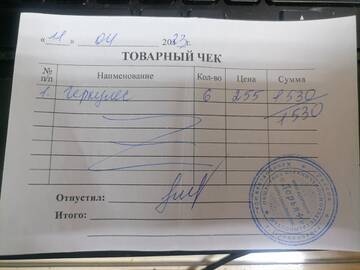 « 11 » 04 2023 г.
ТОВАРНЫЙ ЧЕК
№ п/п Наименование Кол-во Цена Сумма
1. Геркулес 6 255 1530
1530
Отпустил:
Итого: